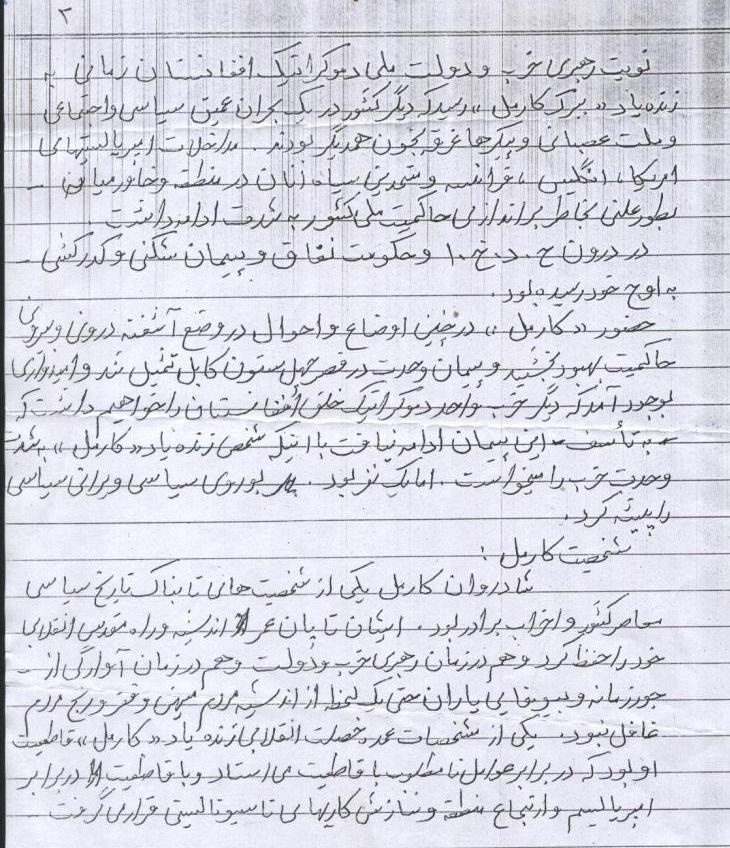 ۲
نوبت رهبری حزب و دولت ملی دموکراتیک افغانستان زمانی به
زنده یاد «ببرک کارمل» رسید که دیگر کشور در یک بحران عمیق سیاسی و اجتماعی
و ملت عصبانی و پیکرها غرقه بخون همدیگر بودند. مداخلات امپریالیستهای
امریکا، انگلیس، فرانسه و شرکای سیاه آنان در منطقه و خاورمیانه -
بطور علنی بخاطر براندازی حاکمیت ملی کشور به شدت ادامه داشت.
در درون ح.د.خ.ا و حکومت نفاق و پیمان شکنی و کدرکشی -
به اوج خود رسیده بود.
حضور «کارمل» در چنین اوضاع و احوال در وضع آشفته درونی و بیرونی
حاکمیت بهبود بخشید و پیمان وحدت در قصر چهل ستون کابل تمثیل شد و امیدواری
بوجود آمد که دیگر حزب واحد دموکراتیک خلق افغانستان را خواهیم داشت که
به تأسف این پیمان ادامه نیافت با اینکه شخص زنده یاد «کارمل» به شدت
وحدت حزب را میخواست. اما یک نفر بود. بوروی سیاسی ویرانی سیاسی
را پیشه کرد.
شخصیت کارمل:
شادروان کارمل یکی از شخصیت های تابناک تاریخ سیاسی
معاصر کشور و احزاب برادر بود. ایشان تا پایان عمر اندیشه و راه مقدس انقلابی
خود را حفظ کرد و هم در زمان رهبری حزب و دولت و هم در زمان آوارگی از -
جور زمانه و بیوفایی یاران حتی یک لحظه از اندیشه مردم میهن و فقر و رنج مردم
غافل نبود. یکی از مشخصات عمده خصلت انقلابی زنده یاد «کارمل» قاطعیت
او بود که در برابر عوامل نامطلوب با قاطعیت می استاد و با قاطعیت در برابر
امپریالیسم و ارتجاع منطقه و سازش کاریهای ناسیونالیستی قرار می گرفت -